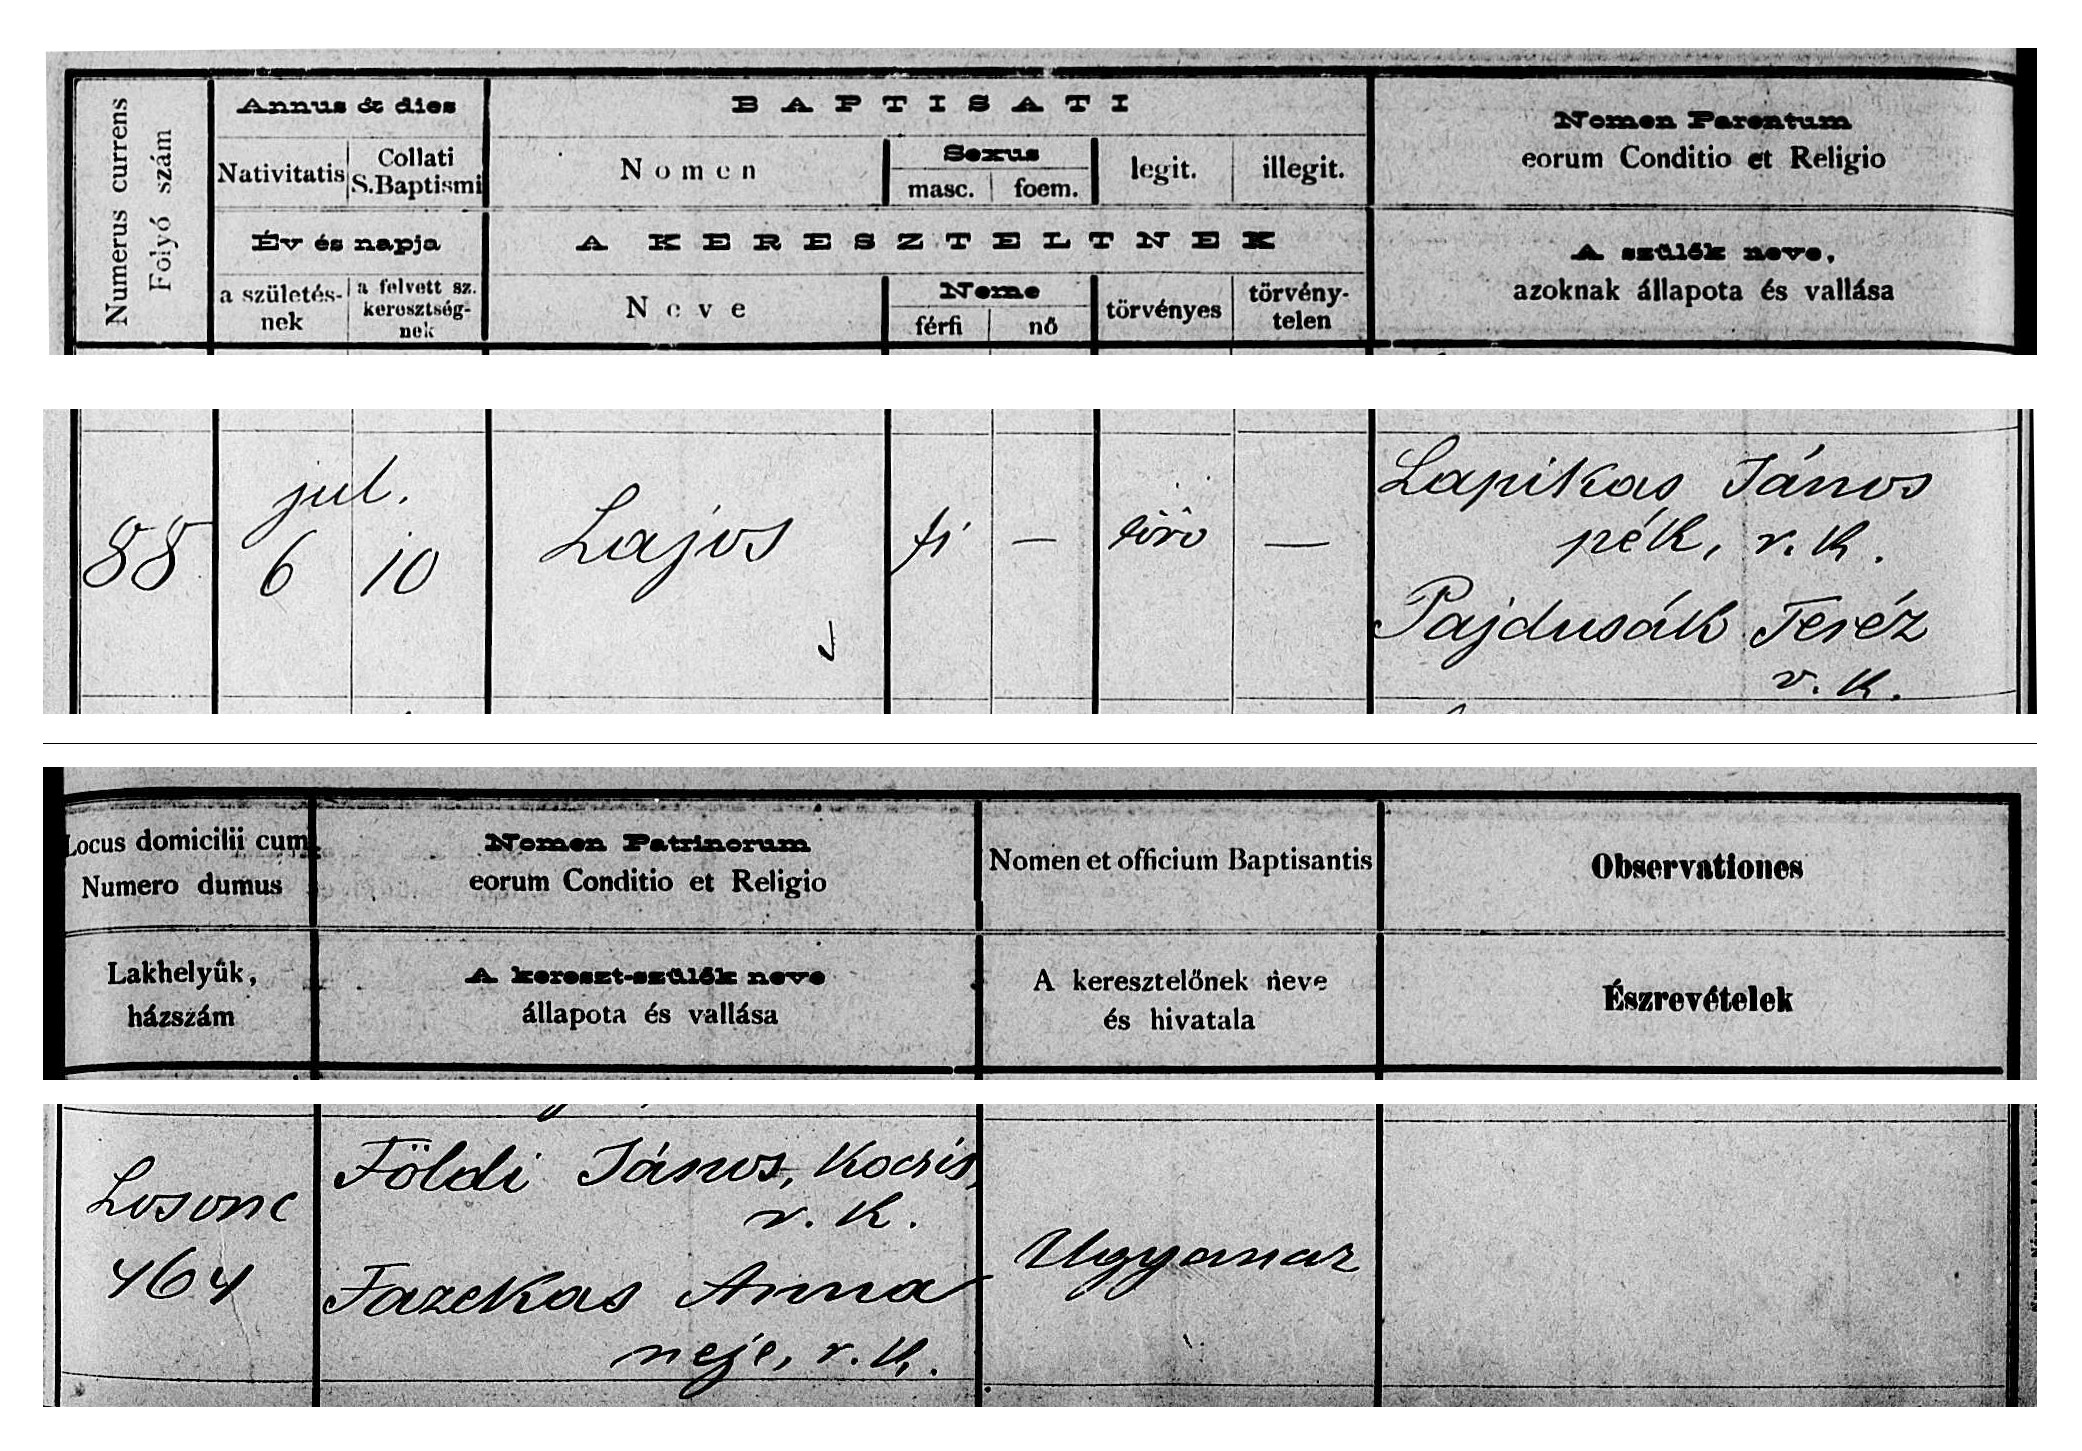 Numerus currens
Folyó szám
Annus & dies
Nativitatis
Collati
S.Baptismi
Év és napja
a születés-
nek
a felvett sz.
keresztség-
nek
BAPTISATI
Nomen
Sexus
masc.
foem.
legit.
illegit.
A KERESZTELTNEK
Neve
Neme
férfi
nő
törvényes
törvény-
telen
Nomen Parentum
eorum Conditio et Religio
A szülők neve,
azoknak állapota és vallása
88
jul.
6
10
Lajos
fi
—
törv
—
Lapikas János
pék, r. k.
Pajdusák Teréz
r. k.
Locus domicilii cum
Numero dumus
Lakhelyük,
házszám
Nomen Patrinorum
eorum Conditio et Religio
A kereszt-szülők neve
állapota és vallása
Nomen et officium Baptisantis
A keresztelőnek neve
és hivatala
Observationes
Észrevételek
Losonc
464
Földi János, Kocsis,
r. k.
Fazekas Anna
neje, r. k.
Ugyanaz